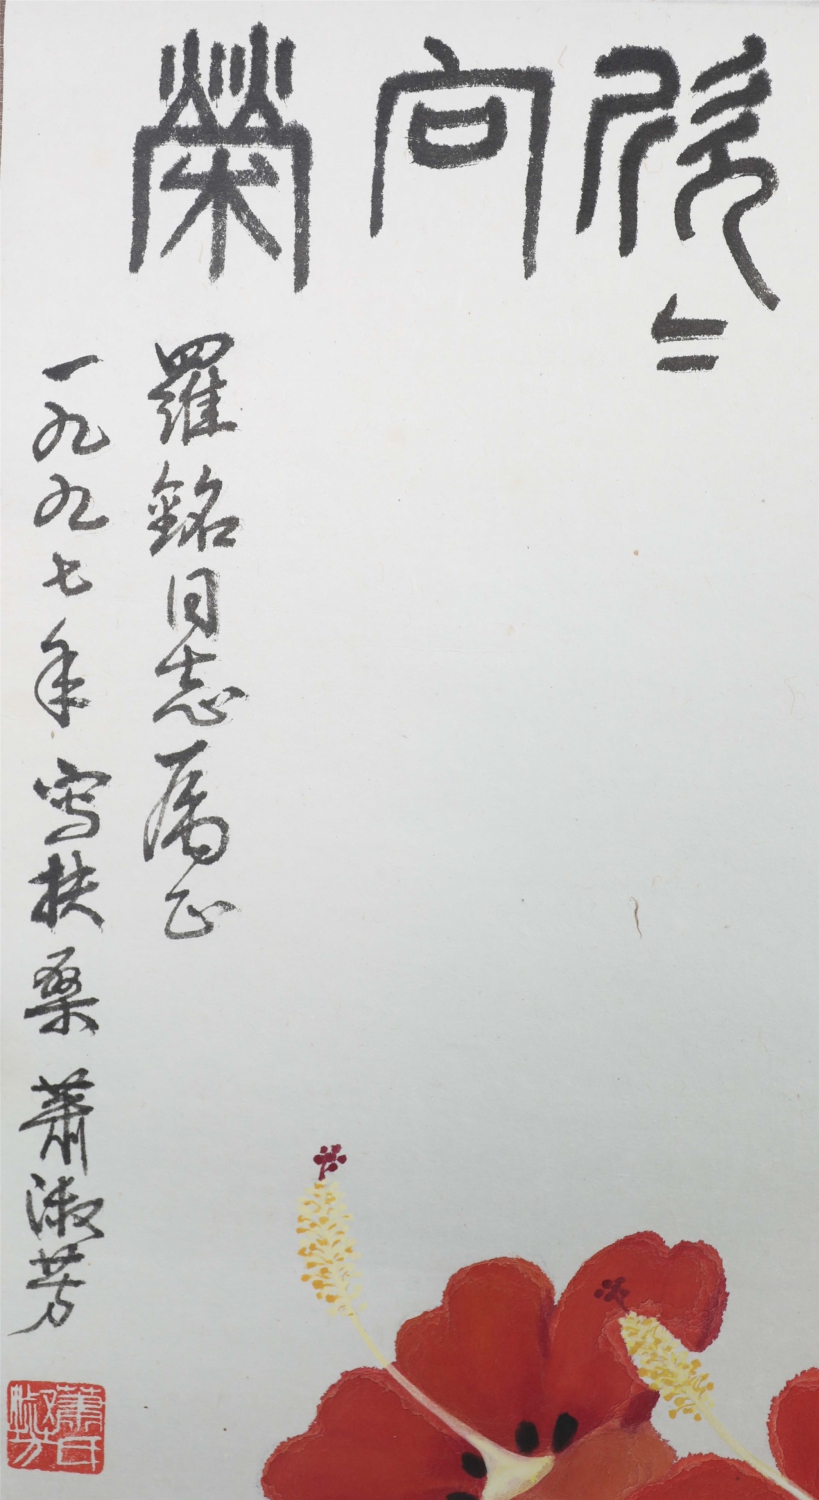 欣=向榮
羅銘同志属正
一九九七年 写扶桑 蕭淑芳
蕭氏淑芳